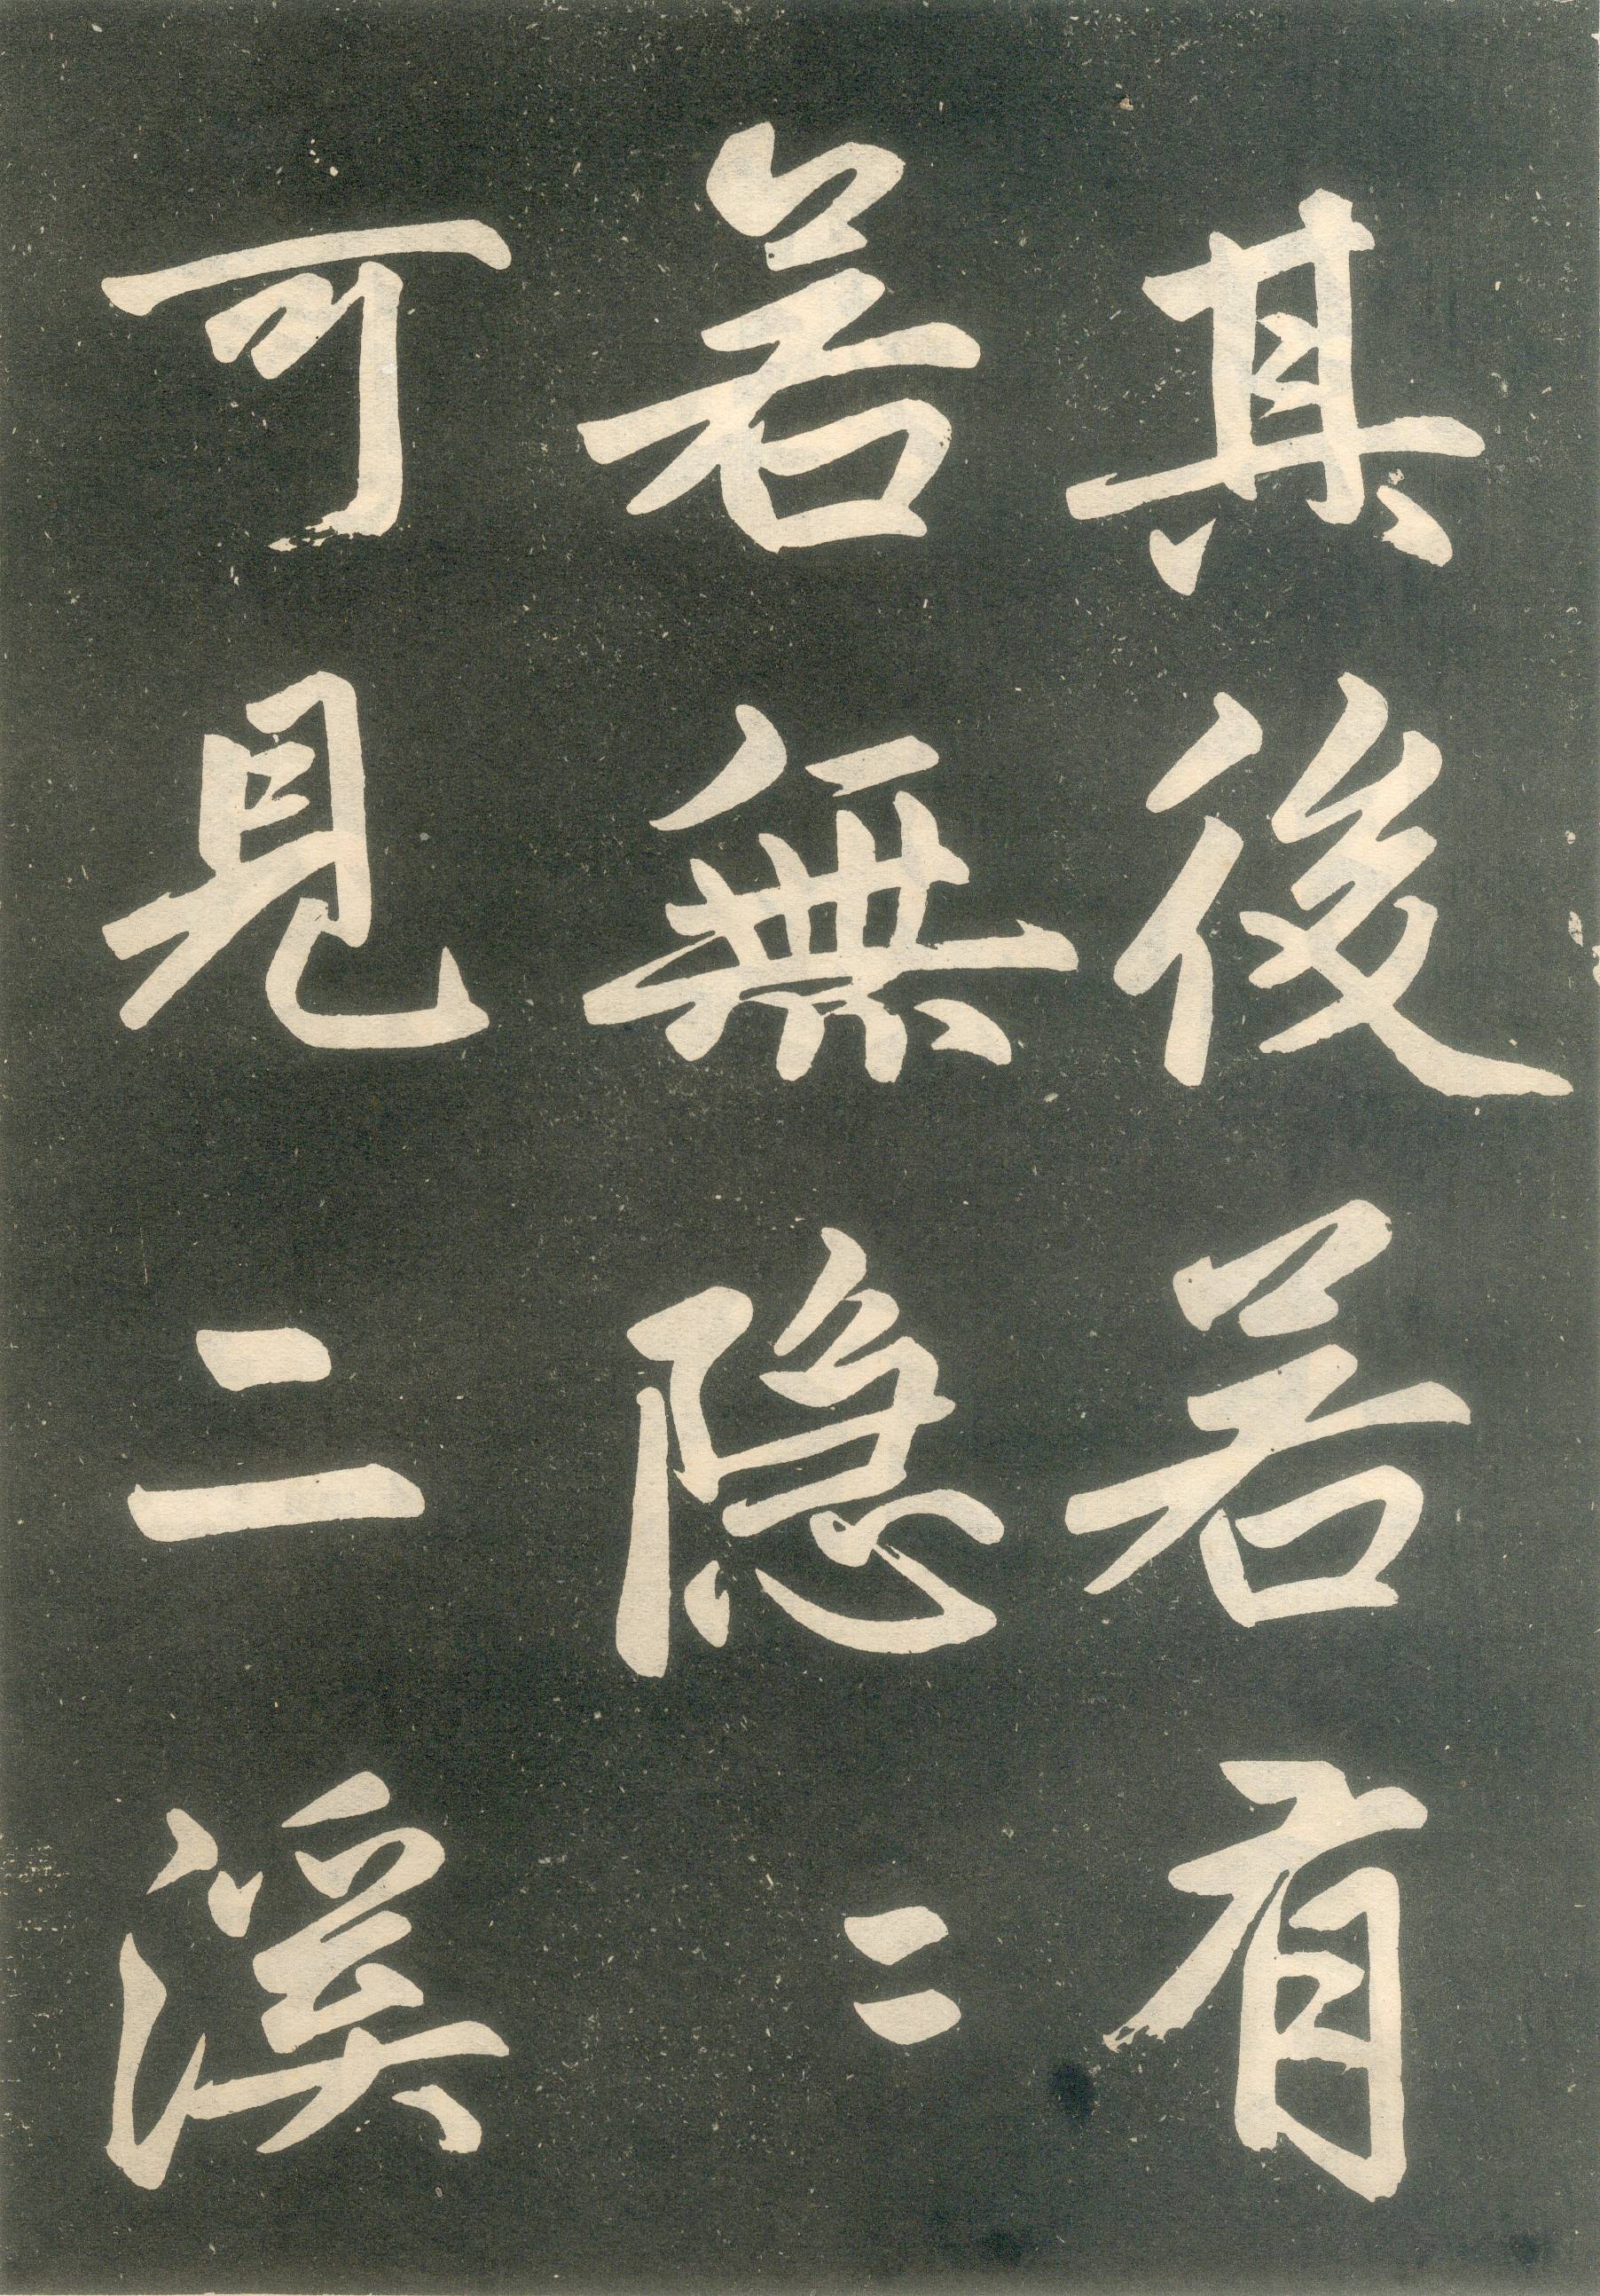 其後若有
若無隱〻
可見二溪